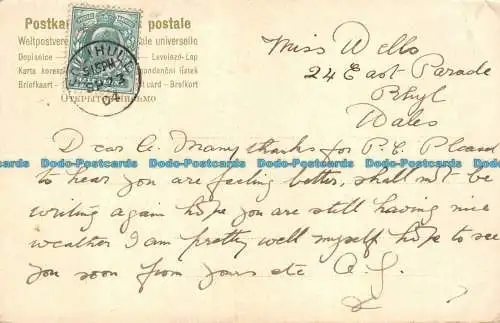 Postkarte postale
Weltpostverein universelle
Dopisnice — Levelező-Lap
Karta korespondencyjna
Briefkaart — Post card — Brefkort
Miss Wells
24 East Parade
Rhyl
Wales
5 15 PM
SP 23
04
Dear A. Many thanks for P.C. Pleased
to hear you are feeling better, shall not be
writing again hope you are still having nice
weather I am pretty well myself hope to see
you soon from yours etc A.J.
x
Dodo-Postcards Dodo-Postcards Dodo-Postcards Dodo-Postcards Dodo-Postcards